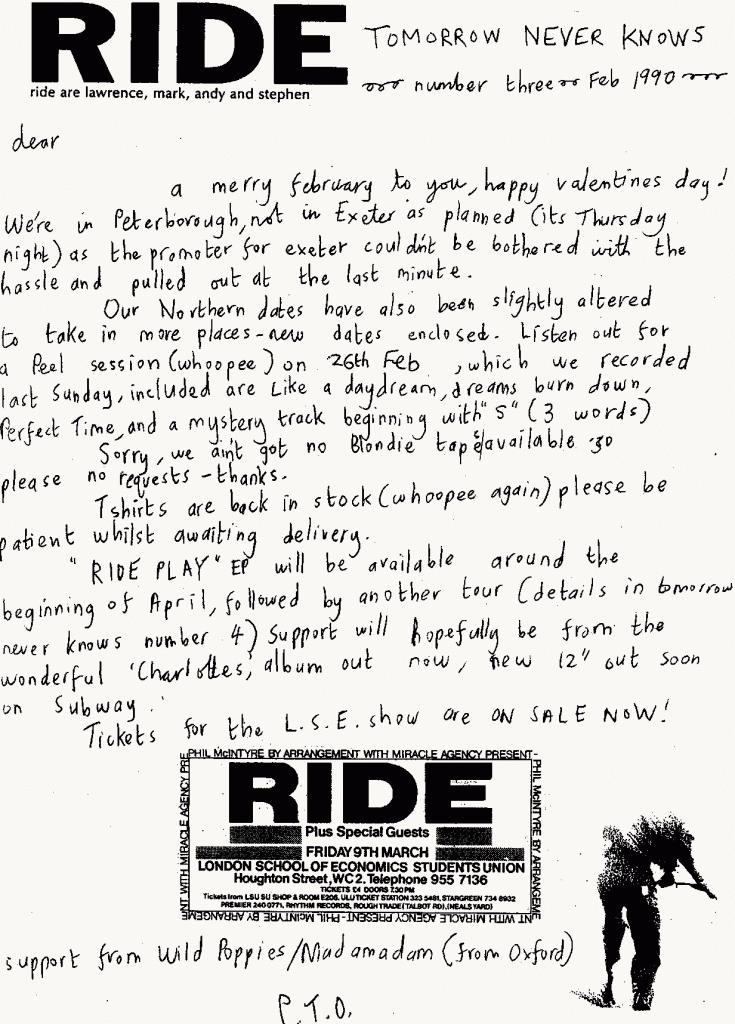 RIDE
ride are lawrence, mark, andy and stephen
TOMORROW NEVER KNOWS
number three Feb 1990
dear
a merry february to you, happy valentines day!
We're in Peterborough, not in Exeter as planned (its Thursday
night) as the promoter for exeter couldn't be bothered with the
hassle and pulled out at the last minute.
Our Northern dates have also been slightly altered
to take in more places - new dates enclosed. Listen out for
a Peel session (whoopee) on 26th Feb, which we recorded
last Sunday, included are Like a daydream, dreams burn down,
Perfect Time, and a mystery track beginning with "S" (3 words)
Sorry, we ain't got no Blondie tapes available so
please no requests - thanks.
Tshirts are back in stock (whoopee again) please be
patient whilst awaiting delivery.
"RIDE PLAY" EP will be available around the
beginning of April, followed by another tour (details in tomorrow
never knows number 4) Support will hopefully be from the
wonderful 'Charlottes', album out now, new 12" out soon
on Subway.
Tickets for the L.S.E. show are ON SALE NOW!
PHIL McINTYRE BY ARRANGEMENT WITH MIRACLE AGENCY PRESENT-
PHIL McINTYRE BY ARRANGEME
NT WITH MIRACLE AGENCY PRESENT-PHIL McINTYRE BY ARRANGEME
NT WITH MIRACLE AGENCY PRE
RIDE
Plus Special Guests
FRIDAY 9TH MARCH
LONDON SCHOOL OF ECONOMICS STUDENTS UNION
Houghton Street, WC2. Telephone 955 7136
TICKETS £4 DOORS 7.30PM
Tickets from LSU SU SHOP & ROOM E206, ULU TICKET STATION 323 5481, STARGREEN 734 8932
PREMIER 240 0771, RHYTHM RECORDS, ROUGH TRADE (TALBOT RD), (NEALS YARD)
support from Wild Poppies/Madamadam (from Oxford)
P.T.O.